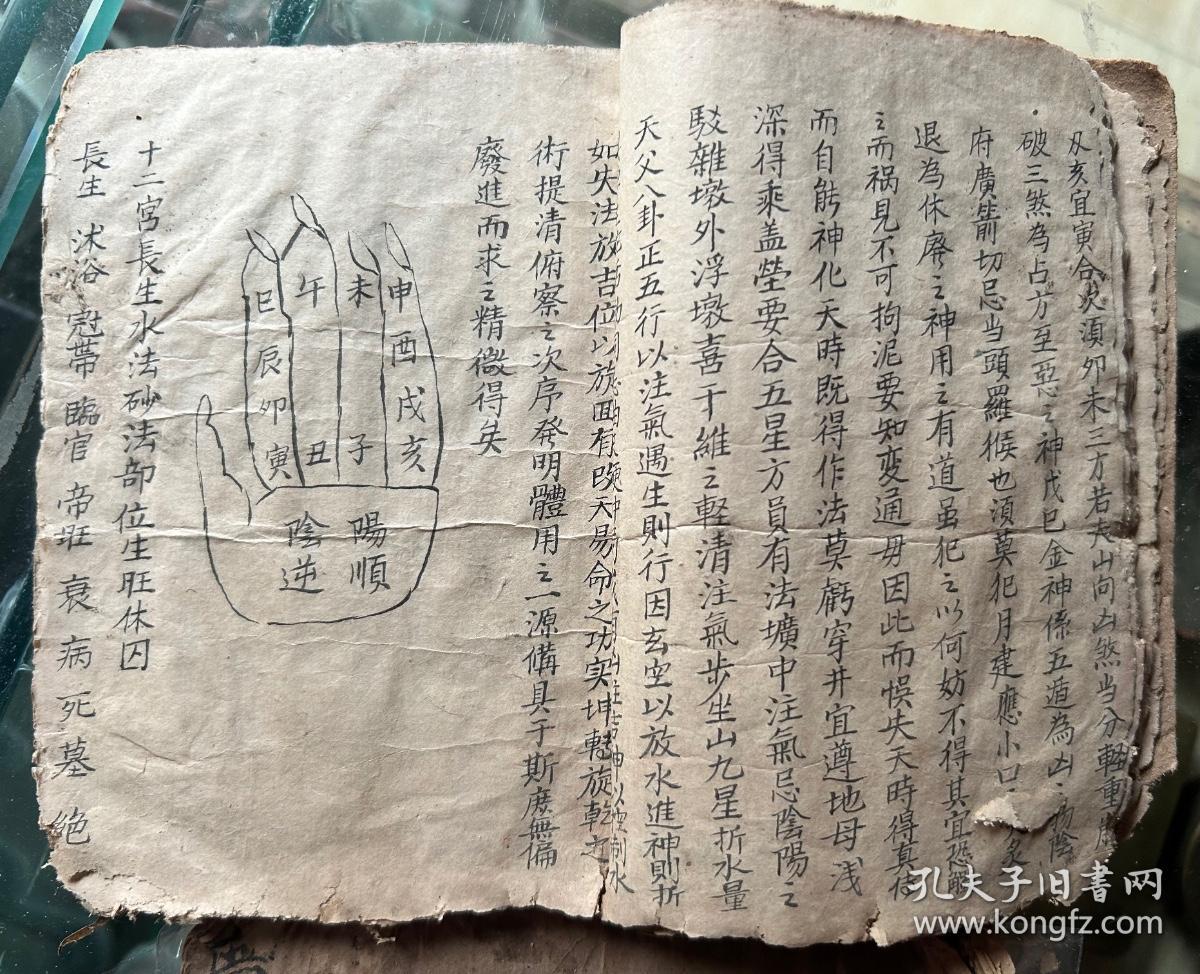 及亥宜寅合火湏夘未三方若夫山向凶煞当分輕重
破三煞為占方至惡之神戊巳金神係五遁為凶
府廣箭切忌当頭羅候也湏莫犯月建應小口
退為休廢之神用之有道虽犯之以何妨不得其宜恐
之而禍見不可拘泥要知变通毋因此而悞失天時得真
而自能神化天時既得作法莫虧穿井宜遵地母浅
深得乘盖塋要合五星方員有法壙中注氣忌陰陽之
駁雜墩外浮墩喜于維之輕清注氣步坐山九星折水量
天父八卦正五行以注氣遇生則行因玄空以放水進神則折
如失法放吉位以旋囬有晩天昜命之功实坤轉旋乾之
術提清俯察之次序発明體用之一源偹具于斯庶無偏
廢進而求之精微得矣
申 未 午 巳
酉 辰
戌 夘
亥 子 丑 寅
陽順
陰逆
十二宮長生水法砂法部位生旺休囚
長生 沭谷 冠帶 臨官 帝旺 衰 病 死 墓 绝
孔夫子旧書网
www.kongfz.com